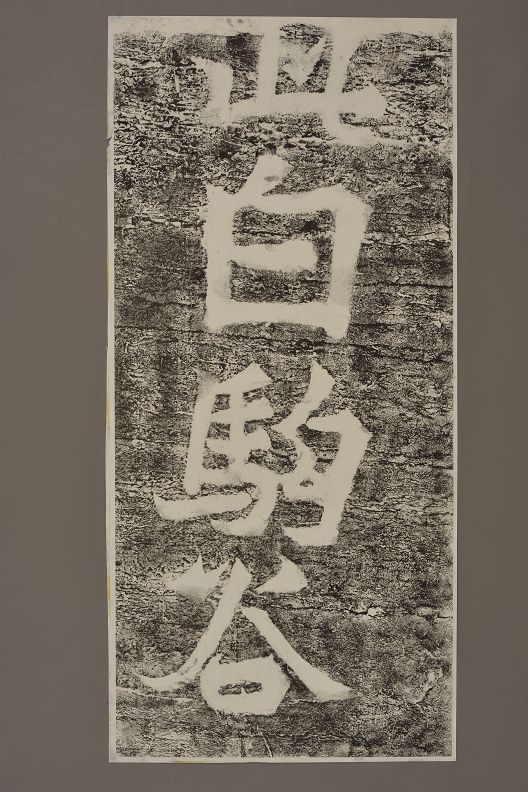 此白駒谷